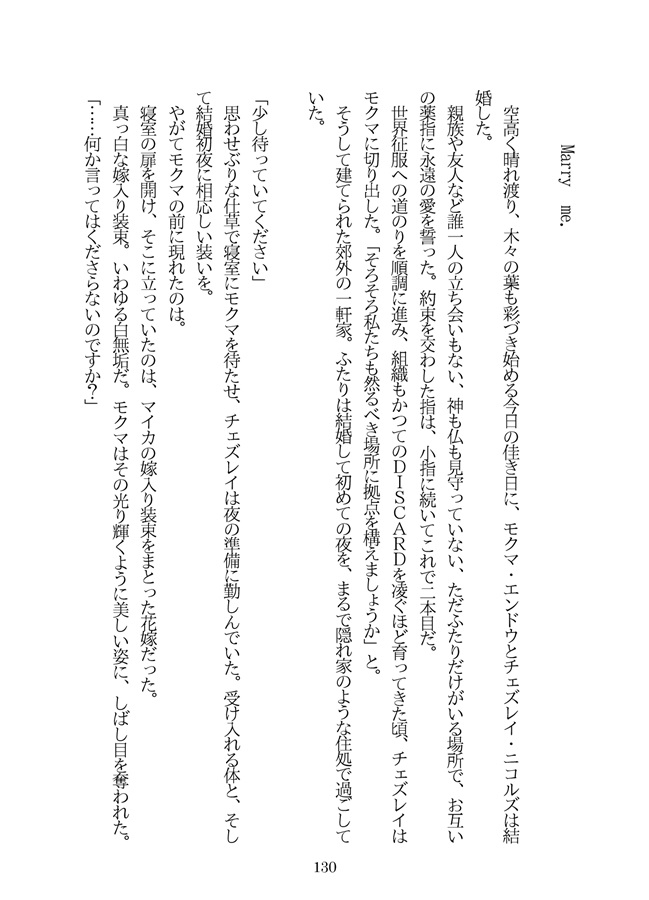 Marry me.
　空高く晴れ渡り、木々の葉も彩づき始める今日の佳き日に、モクマ・エンドウとチェズレイ・ニコルズは結
婚した。
　親族や友人など誰一人の立ち会いもない、神も仏も見守っていない、ただふたりだけがいる場所で、お互い
の薬指に永遠の愛を誓った。約束を交わした指は、小指に続いてこれで二本目だ。
　世界征服への道のりを順調に進み、組織もかつてのＤＩＳＣＡＲＤを凌ぐほど育ってきた頃、チェズレイは
モクマに切り出した。「そろそろ私たちも然るべき場所に拠点を構えましょうか」と。
　そうして建てられた郊外の一軒家。ふたりは結婚して初めての夜を、まるで隠れ家のような住処で過ごして
いた。
「少し待っていてください」
　思わせぶりな仕草で寝室にモクマを待たせ、チェズレイは夜の準備に勤しんでいた。受け入れる体と、そし
て結婚初夜に相応しい装いを。
　やがてモクマの前に現れたのは。
　寝室の扉を開け、そこに立っていたのは、マイカの嫁入り装束をまとった花嫁だった。
　真っ白な嫁入り装束。いわゆる白無垢だ。モクマはその光り輝くように美しい姿に、しばし目を奪われた。
「……何か言ってはくださらないのですか？」
130